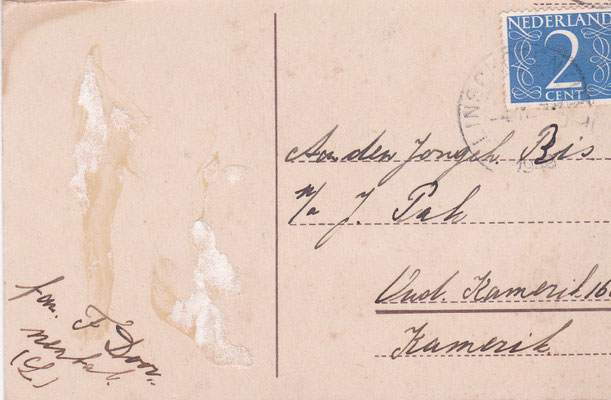 NEDERLAND
2
CENT
LINSCH
Aan den Jongeh Bis
p/a J. Pak
Oud. Kamerik 16
Kamerik
fam. F Door-
nenbal.
(L.)